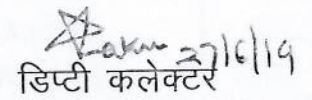 27/6/19
डिप्टी कलेक्टर